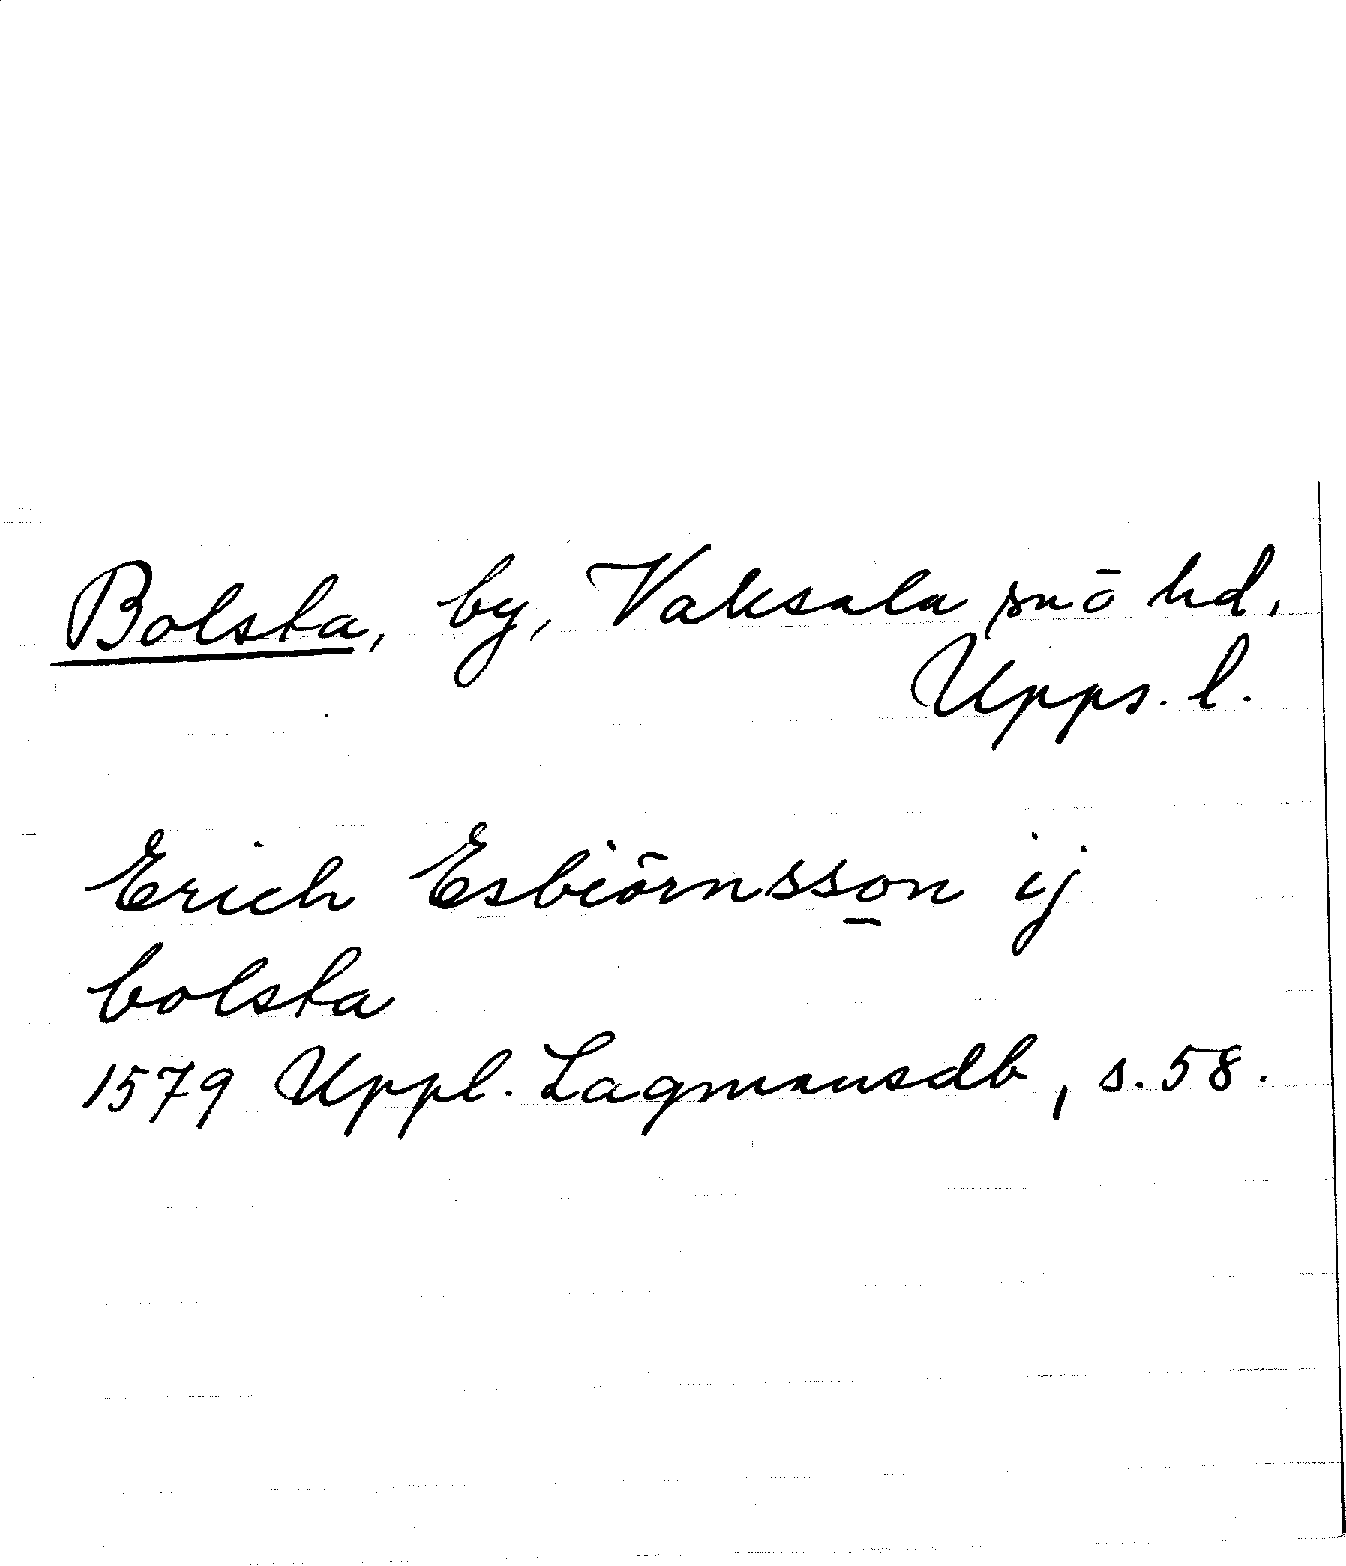 Bolsta, by, Vaksala sn o hd,
Upps. l.
Erich Esbiörnsson ij
bolsta
1579 Uppl. Lagmansdb, s. 58.